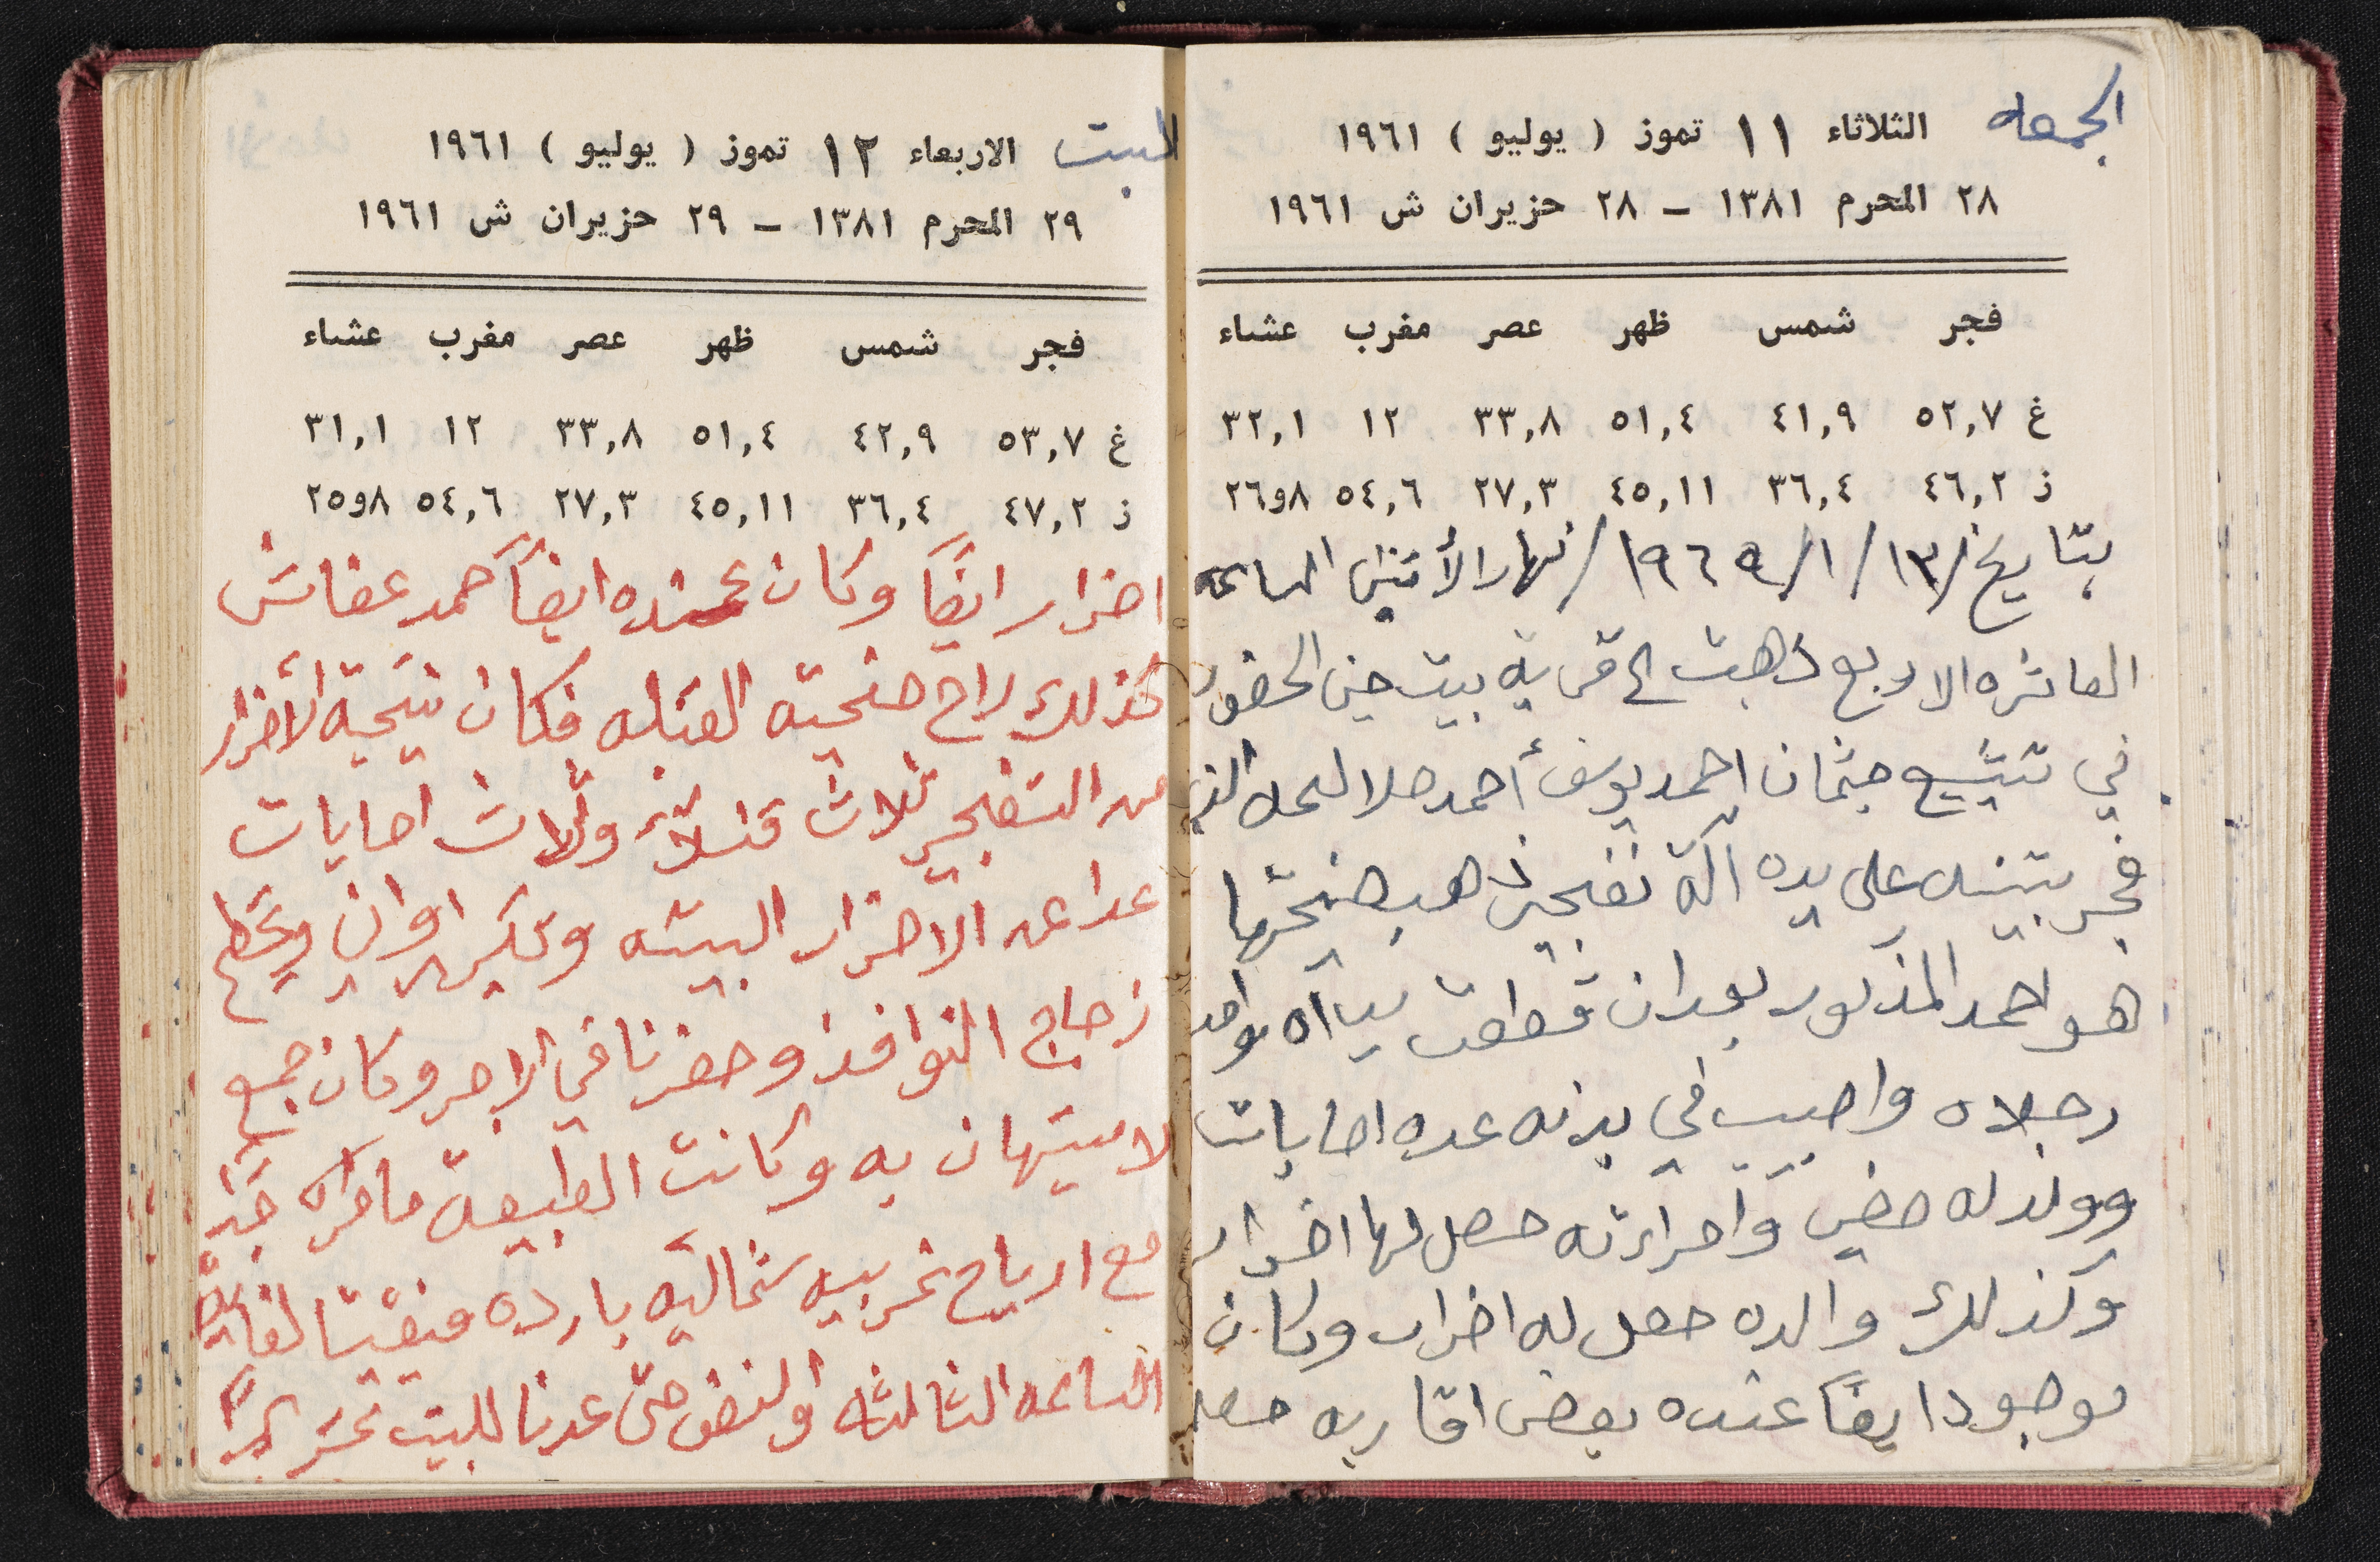 الجمعه
الثلاثاء ١١ تموز ( يوليو ) ١٩٦١
٢٨ المحرم ١٣٨١ – ٢٨ حزيران ش ١٩٦١
فجر شمس ظهر عصر مغرب عشاء
غ ٥٢,٧ ٤١,٩ ٥١,٤ ٣٣,٨ ١٢ ٣٢,١
ز ٤٦,٢ ٣٦,٤ ٤٥,١١ ٢٧,٣ ٥٤,٦ ٨و٢٦
بتاريخ /١٣/١/١٩٦٩/ نهار الأثنين الساعه
العاشره الا ربع ذهبت الى قرية بيت جن الحضور
في تشيع جثمان احمد يوسف أحمد صلالحه الذي
فجر بنينه على يده آلة تفجير ذهب ضحيتها
هو احمد المذكور بعدان قطعت يداه واحد
رجلاه واصيب في بدنه عده اصابات
وولد له مضى وامرأته حصل لها اضرار
وكذلك والده حصل له اضرار وكان
موجود ايضاً عنده بعض اقاربه حصل
السبت
الاربعاء ١٢ تموز ( يوليو ) ١٩٦١
٢٩ المحرم ١٣٨١ – ٢٩ حزيران ش ١٩٦١
فجر شمس ظهر عصر مغرب عشاء
غ ٥٣,٧ ٤٢,٩ ٥١,٤ ٣٣,٨ ١٢ ٣١,١
ز ٤٧,٢ ٣٦,٤ ٤٥,١١ ٢٧,٣ ٥٤,٦ ٨و٢٥
اضرار ايضاً وكان عنده ايضاً حمد عفاش
كذلك راح ضحيته القنبله فكان نتيجة الأضرار
من التفجير ثلاث قتلاً وثلاث اصابات
عدا عن الأضرار البيته وتكسير اواني وتحطم
زجاج النوافذ وحضرنا في الاجر وكان جمع
لا ميتهان به وكانت الطبيعة ماطره جداً
مع ارياح غربيه شماليه بارده وبقينا لغاية
الساعه الثالثه والنصف حتى عدنا للبيت